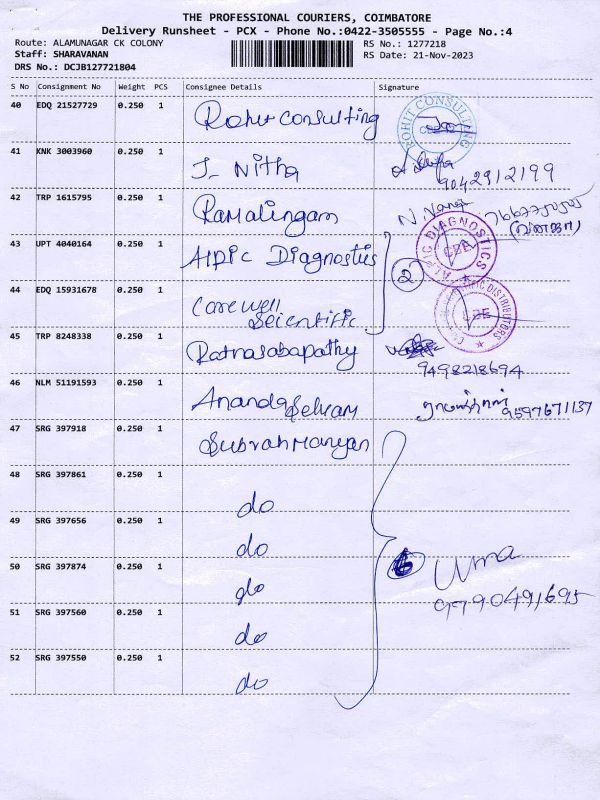 THE PROFESSIONAL COURIERS, COIMBATORE
Delivery Runsheet - PCX - Phone No.:0422-3505555 - Page No.:4
Route: ALAMUNAGAR CK COLONY
RS No.: 1277218
Staff: SHARAVANAN
RS Date: 21-Nov-2023
DRS No.: DCJB127721804
S No Consignment No Weight PCS Consignee Details Signature
40 EDQ 21527729 0.250 1 Rohit consulting ROHIT CONSULTING
41 KNK 3003960 0.250 1 J. Nitha 9042912199
42 TRP 1615795 0.250 1 Ramalingam N
43 UPT 4040164 0.250 1 Alpic Diagnostics ALPIC DIAGNOSTICS CBE
2
44 EDQ 15931678 0.250 1 Carewell Scientific DISTRIBUTORS CBE
45 TRP 8248338 0.250 1 Ratnasabapathy 9498218694
46 NLM 51191593 0.250 1 Ananda Selvam 9597671137
47 SRG 397918 0.250 1 Subrahmaniyan
48 SRG 397861 0.250 1 do
49 SRG 397656 0.250 1 do
50 SRG 397874 0.250 1 do 6 Uma
9790491695
51 SRG 397560 0.250 1 do
52 SRG 397550 0.250 1 do